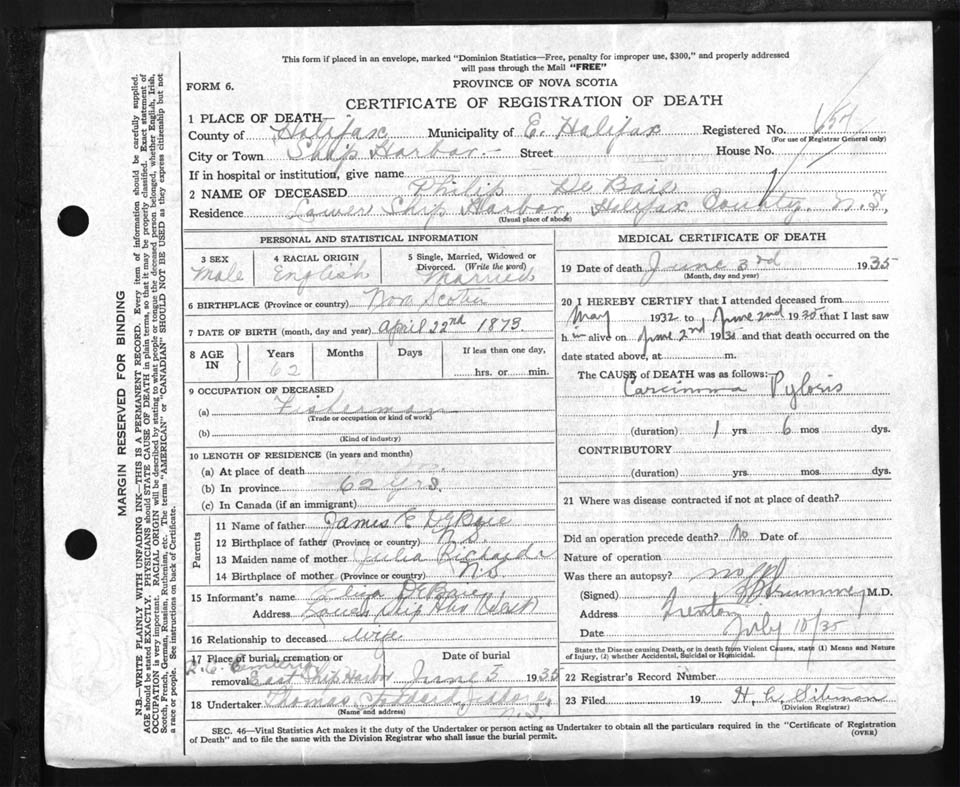 This form if placed in an envelope, marked "Dominion Statistics—Free, penalty for improper use, $300," and properly addressed
will pass through the Mail "FREE"
FORM 6.
PROVINCE OF NOVA SCOTIA
CERTIFICATE OF REGISTRATION OF DEATH
1 PLACE OF DEATH—
County of Halifax Municipality of E. Halifax Registered No.
(For use of Registrar General only)
City or Town Ship Harbor Street House No.
If in hospital or institution, give name
2 NAME OF DECEASED Philip De Baie
Residence Lower Ship Harbor, Halifax County. N.S.
(Usual place of abode)
PERSONAL AND STATISTICAL INFORMATION
3 SEX 4 RACIAL ORIGIN 5 Single, Married, Widowed or
Divorced. (Write the word)
Male English Married
6 BIRTHPLACE (Province or country) Nova Scotia
7 DATE OF BIRTH (month, day and year) April 22nd 1873.
8 AGE IN Years Months Days If less than one day,
62 hrs. or min.
9 OCCUPATION OF DECEASED
(a) Fisherman
(Trade or occupation or kind of work)
(b)
(Kind of industry)
10 LENGTH OF RESIDENCE (in years and months)
(a) At place of death
(b) In province 62 yrs.
(c) In Canada (if an immigrant)
Parents
11 Name of father James E DeBaie
12 Birthplace of father (Province or country) N.S
13 Maiden name of mother Julia Richards
14 Birthplace of mother (Province or country) N.S
15 Informant's name Eliza DeBaie
Address Lower Ship Har East
16 Relationship to deceased wife
17 Place of burial, cremation or Date of burial
R.C. Cemetery
removal East Ship Harbor June 5 1935
18 Undertaker Thomas
(Name and address)
N.S.
MEDICAL CERTIFICATE OF DEATH
19 Date of death June 3rd 1935
(Month, day and year)
20 I HEREBY CERTIFY that I attended deceased from
May 1932 to June 2nd 1935 that I last saw
him alive on June 2nd 1935 and that death occurred on the
date stated above, at m.
The CAUSE OF DEATH was as follows:—
Carcinoma Pyloris
(duration) 1 yrs 6 mos dys.
CONTRIBUTORY
(duration) yrs. mos dys.
21 Where was disease contracted if not at place of death?
Did an operation precede death? No Date of
Nature of operation
Was there an autopsy? no
(Signed) M.D.
Address
Date July 10/35
State the Disease causing Death, or in death from Violent Causes, state (1) Means and Nature
of Injury, (2) whether Accidental, Suicidal or Homicidal.
22 Registrar's Record Number
23 Filed 19
(Division Registrar)
SEC. 46—Vital Statistics Act makes it the duty of the Undertaker or person acting as Undertaker to obtain all the particulars required in the "Certificate of Registration
of Death" and to file the same with the Division Registrar who shall issue the burial permit.
(OVER)
MARGIN RESERVED FOR BINDING
N.B.—WRITE PLAINLY WITH UNFADING INK—THIS IS A PERMANENT RECORD. Every item of information should be carefully supplied.
AGE should be stated EXACTLY. PHYSICIANS should STATE CAUSE OF DEATH in plain terms, so that it may be properly classified. Exact statement of
OCCUPATION is very important. RACIAL ORIGIN will be described by stating to what people or tongue the deceased person belonged, whether English, Irish,
Scotch, French, German, Russian, Ruthenian, etc. The terms "AMERICAN" or "CANADIAN" SHOULD NOT BE USED as they express citizenship but not
a race or people. See instructions on back of Certificate.